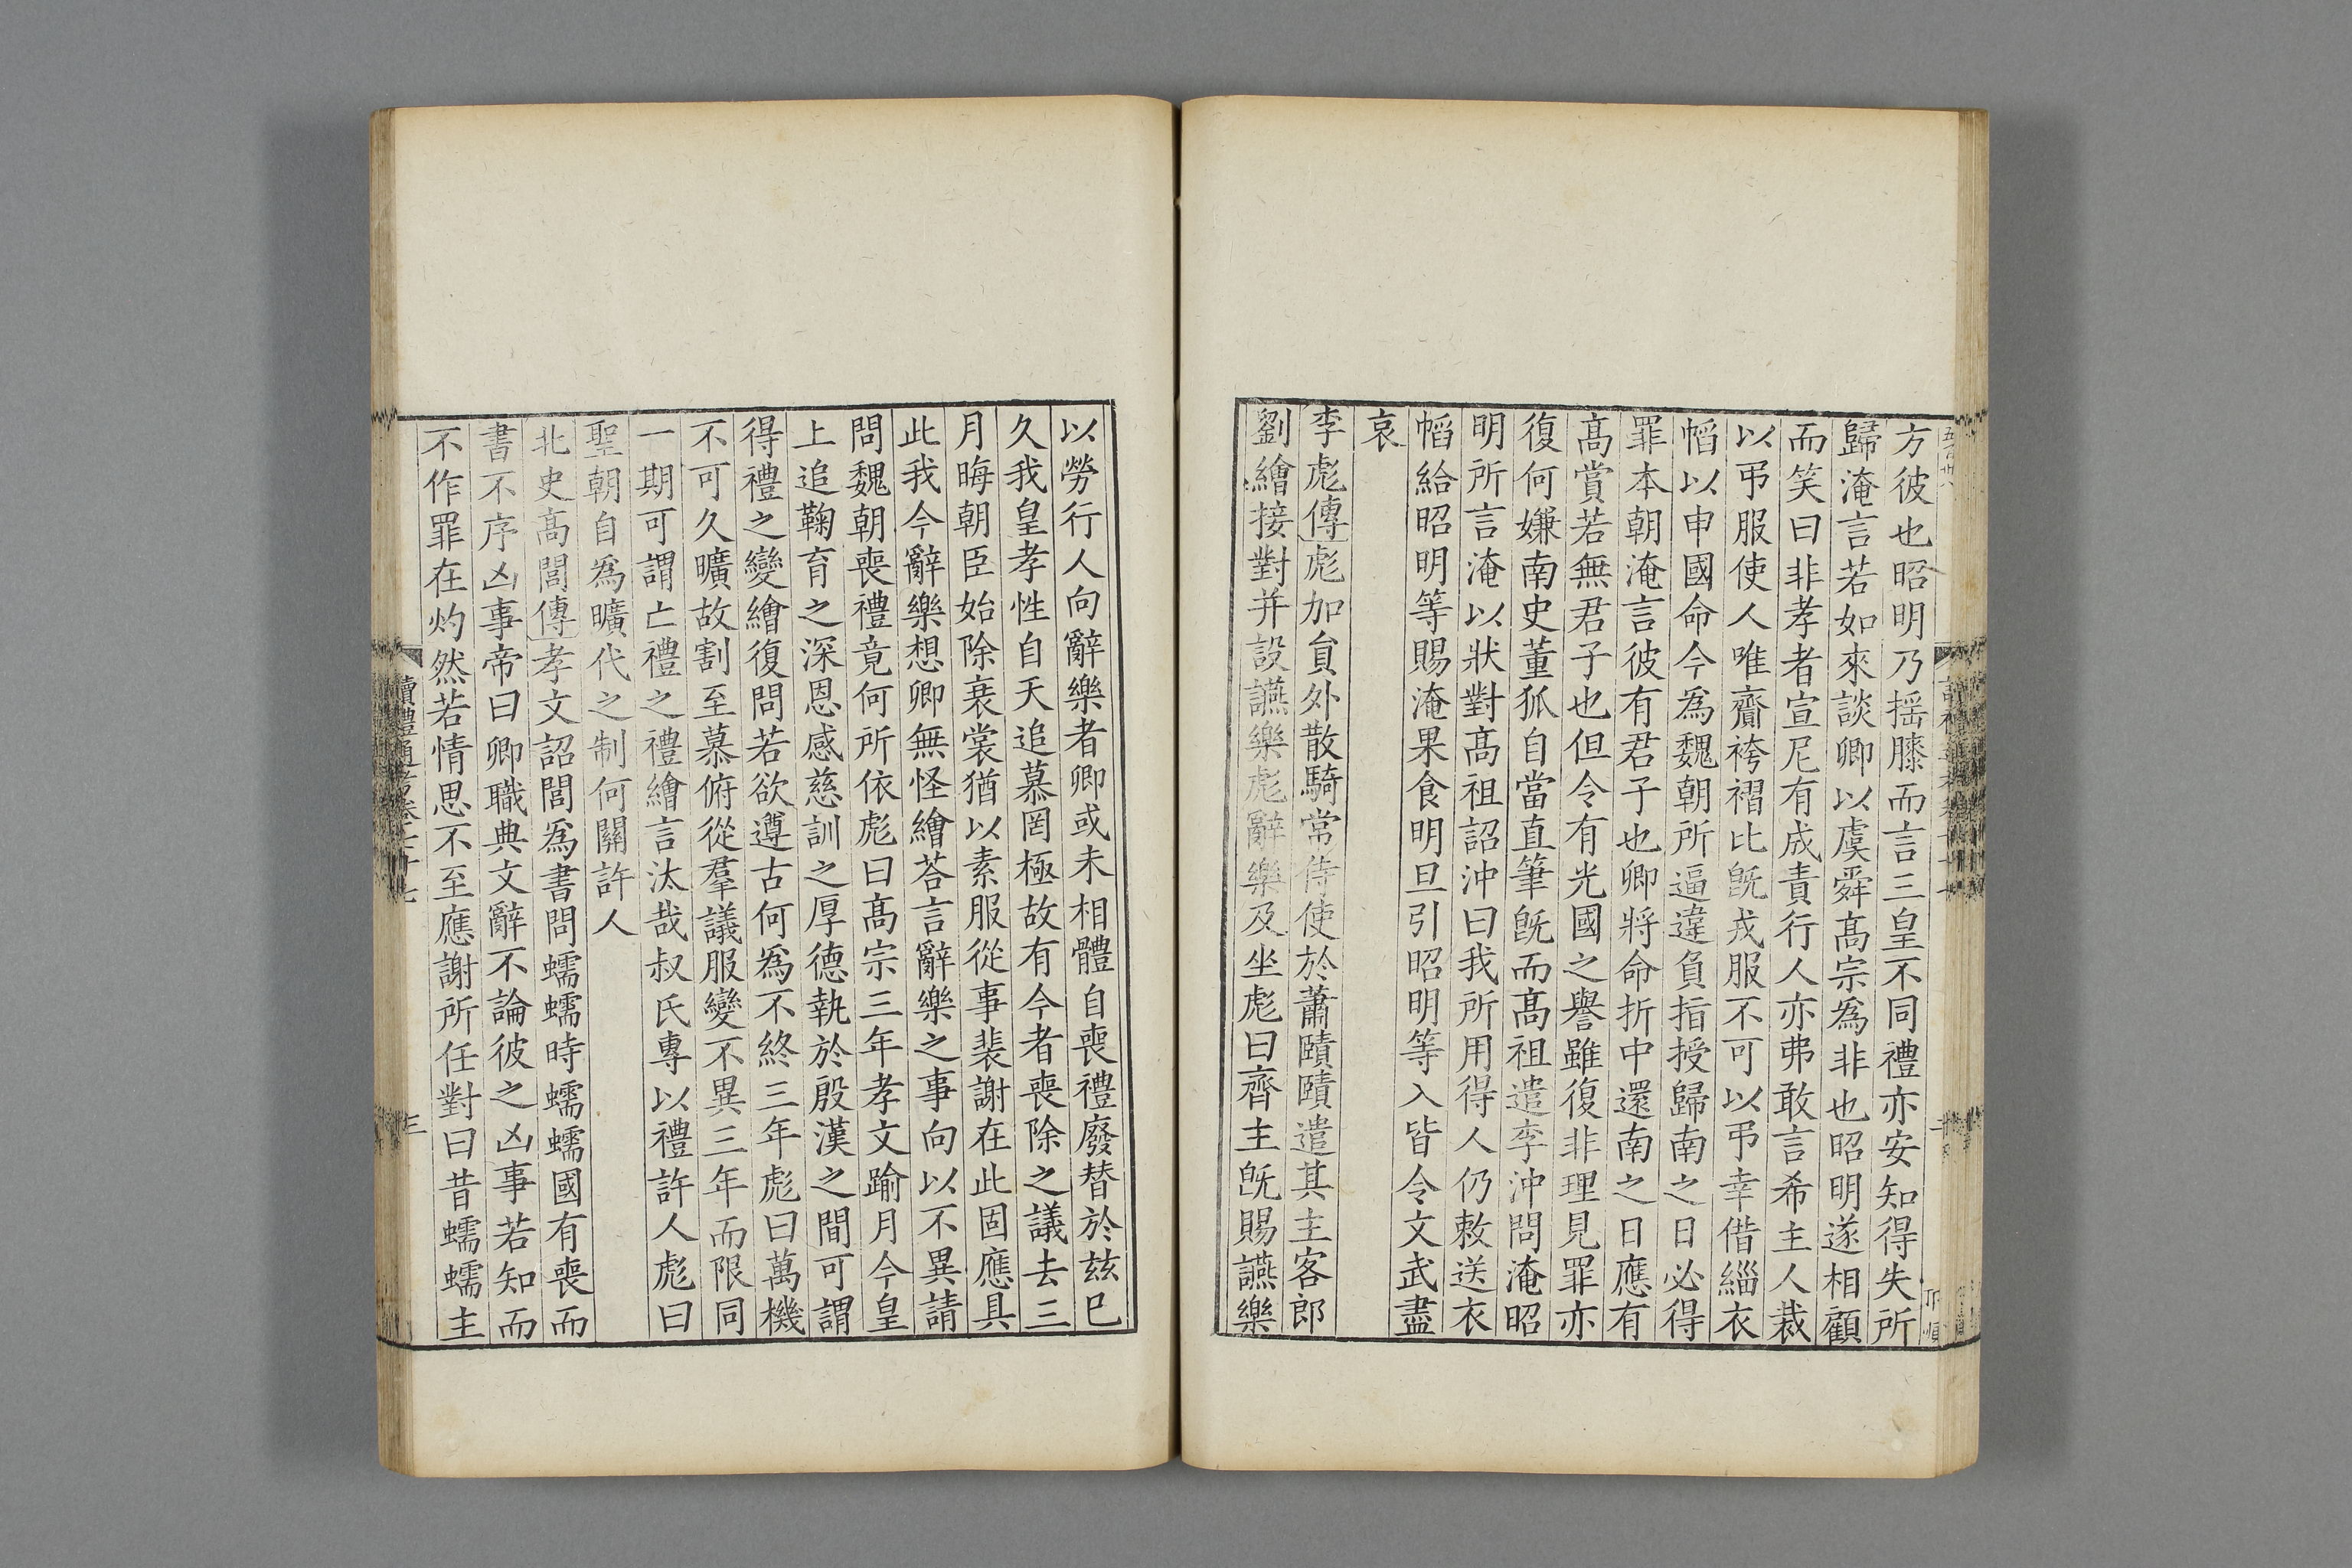 方彼也昭明乃揺膝而言三皇不同禮亦安知得失所
歸淹言若如來談卿以虞舜髙宗為非也昭明遂相顧
而笑曰非孝者宣尼有成責行人亦弗敢言希主人裁
以弔服使人唯齎袴褶比旣戎服不可以弔幸借緇衣
㡊以申國命今為魏朝所逼違負指授歸南之日必得
罪本朝淹言彼有君子也卿將命折中還南之日應有
髙賞若無君子也但令有光國之譽雖復非理見罪亦
復何嫌南史董狐自當直筆旣而髙祖遣李沖問淹昭
明所言淹以狀對髙祖詔沖曰我所用得人仍敕送衣
㡊給昭明等賜淹果食明旦引昭明等入皆令文武盡
哀
李彪傳彪加貟外散騎常侍使於蕭賾賾遣其主客郎
劉繪接對并設讌樂彪辭樂及坐彪曰齊主旣賜讌樂
以勞行人向辭樂者卿或未相體自喪禮廢替於玆巳
久我皇孝性自天追慕罔極故有今者喪除之議去三
月晦朝臣始除衰裳猶以素服從事裴謝在此固應具
此我今辭樂想卿無怪繪荅言辭樂之事向以不異請
問魏朝喪禮竟何所依彪曰髙宗三年孝文踰月今皇
上追鞠育之深恩感慈訓之厚德執於殷漢之間可謂
得禮之變繪復問若欲遵古何為不終三年彪曰萬機
不可久曠故割至慕俯從羣議服變不異三年而限同
一期可謂亡禮之禮繪言汰哉叔氏專以禮許人彪曰
聖朝自為曠代之制何關許人
北史髙閭傳孝文詔閭為書問蠕蠕時蠕蠕國有喪而
書不序凶事帝曰卿職典文辭不論彼之凶事若知而
不作罪在灼然若情思不至應謝所任對曰昔蠕蠕主
讀禮通考卷二十七
三